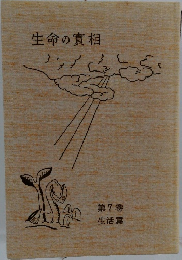 生命の實相
第7巻
生活篇